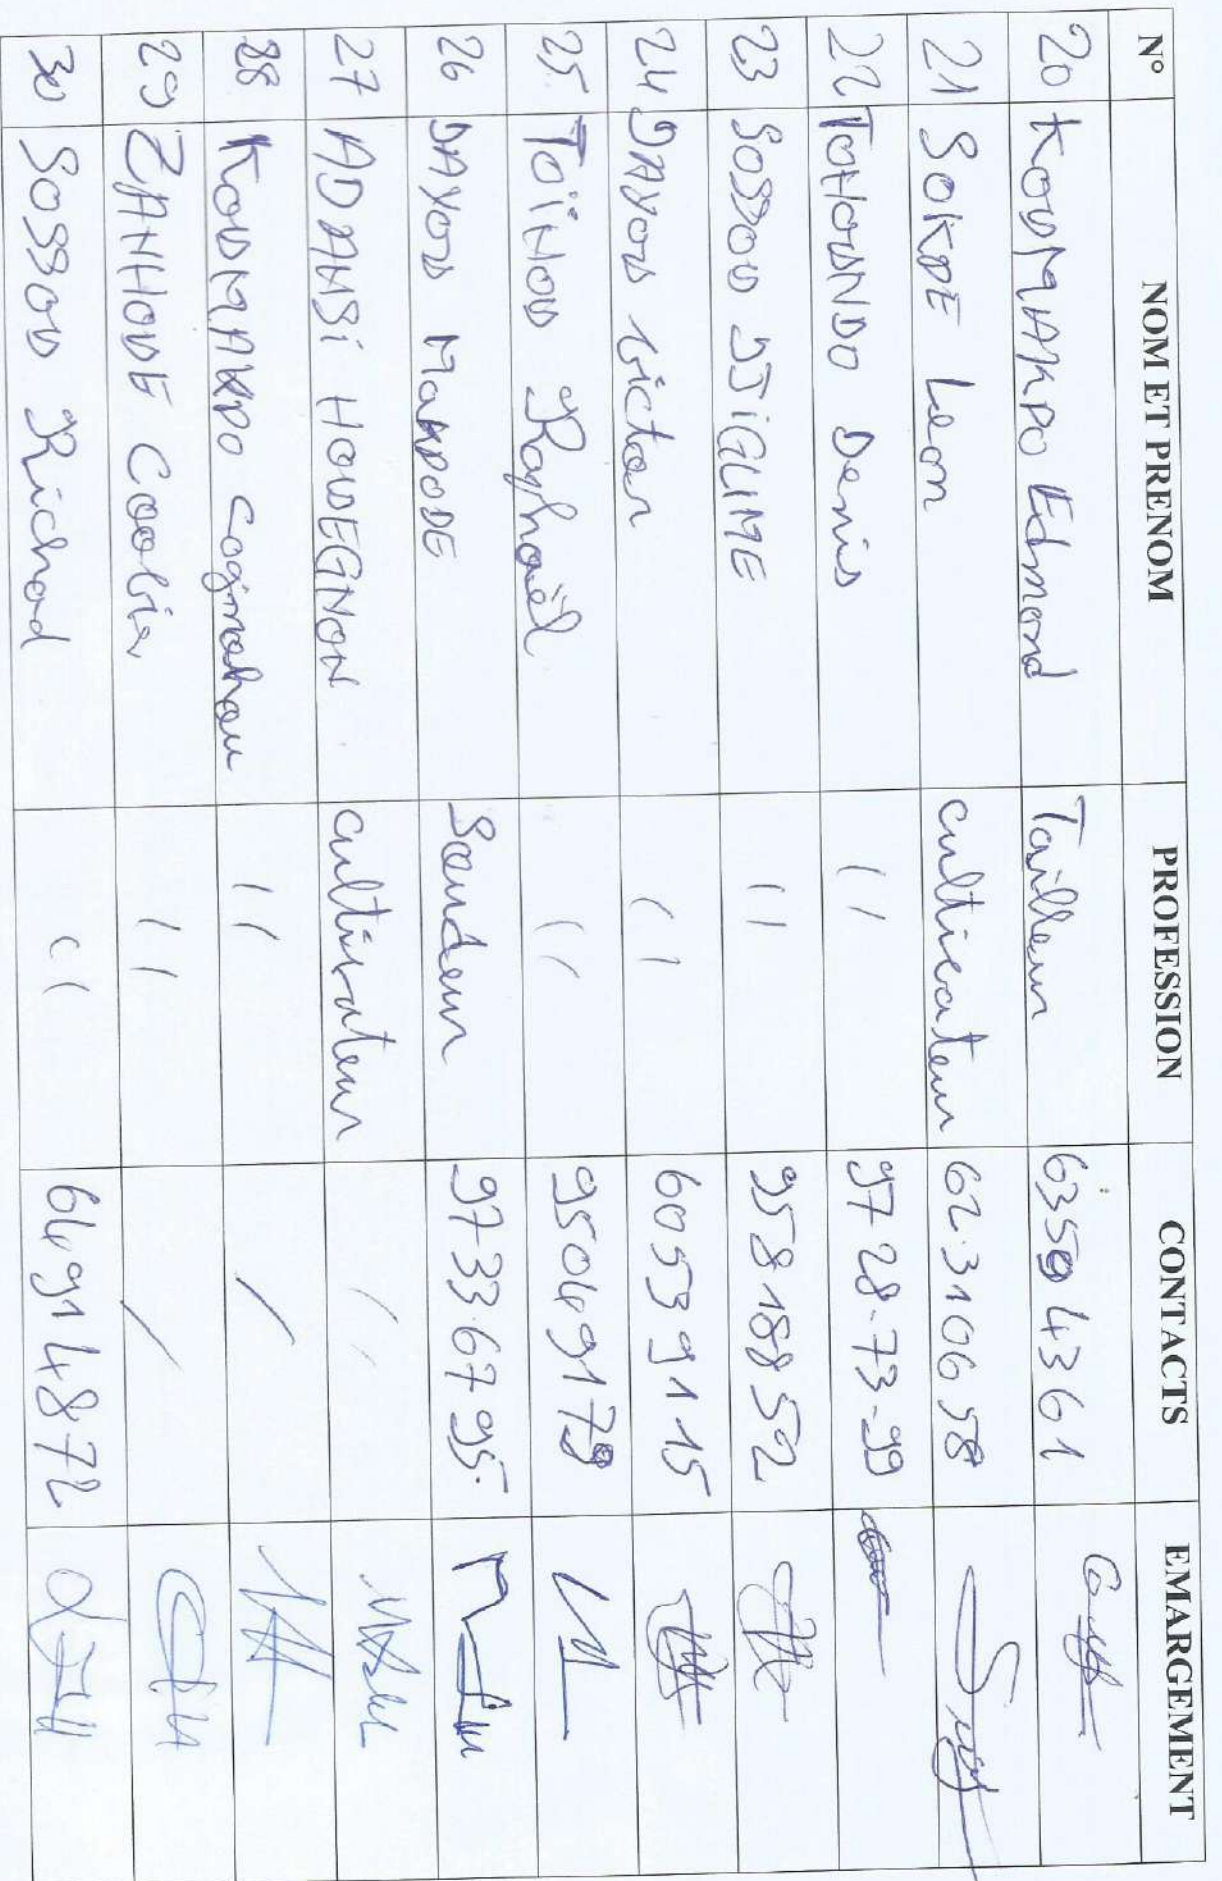 N° NOM ET PRENOM PROFESSION CONTACTS EMARGEMENT
20 KOUMAKPO Edmond Tailleur 63504361
21 SOKDE Leon cultivateur 62310658
22 TOHOUNDO Denis 11 97-28-73-99
23 SOSSOU DJIGLIME 11 95818852
24 DAYOU Victor 11 60539115
25 TOÏHOU Raphaël 11 95049179
26 DAYOU MAKPODE Soudeur 97336795
27 ADDAHSi HOUEGNON cultivateur 11
28 KOUMAKPO Cognahou 11 /
29 ZANHOUDE Coolie 11 /
30 SOSSOU Richad 11 64914872